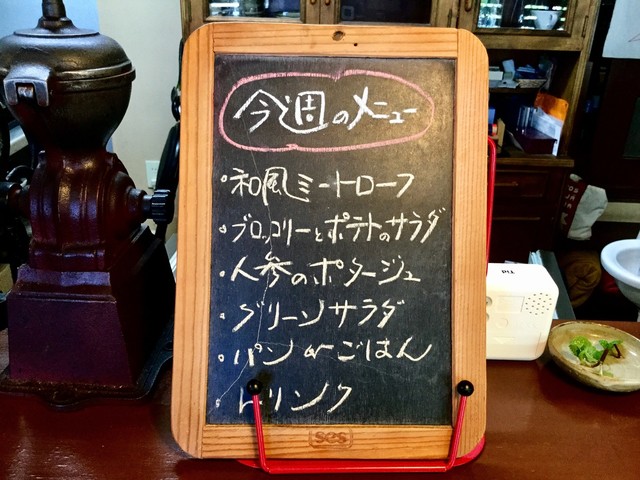 今週のメニュー
・和風ミートローフ
・ブロッコリーとポテトのサラダ
・人参のポタージュ
・グリーンサラダ
・パン or ごはん
・ドリンク
ses